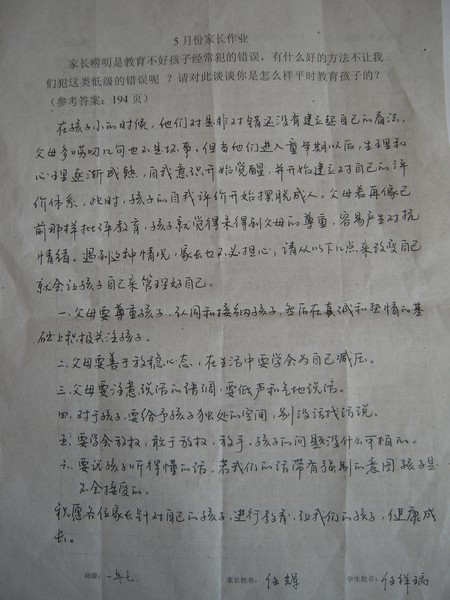 5月份家长作业
家长唠明是教育不好孩子经常犯的错误，有什么好的方法不让我
们犯这类低级的错误呢？请对此谈谈你是怎么样平时教育孩子的？
（参考答案：194页）
在孩子小的时候，他们对是非对错还没有建立起自己的看法，
父母多唠叨几句也不是坏事，但当他们进入童学期以后，生理和
心理逐渐成熟，自我意识开始觉醒，并开始建立对自己的评
价体系，此时，孩子的自我评价开始摆脱成人。父母若再像已
前那样批评教育，孩子就觉得未得到父母的尊重，容易产生对抗
情绪。遇到这种情况，家长也不必担心，请从以下几点来改变自己
就会让孩子自己来管理好自己。
一、父母要尊重孩子、认同和接纳孩子，然后在真诚和热情的基
础上积极关注孩子。
二、父母要善于放稳心态，在生活中要学会为自己减压。
三、父母要注意说话的语调，要低声和气地说话。
四、对于孩子，要给予孩子独处的空间，别没话找话说。
五、要学会放权，敢于放权，放手，孩子的问题没什么可怕的。
六、要说孩子听得懂的话，若我们的话带有强制的意图孩子是
不会接受的。
祝愿各位家长针对自己的孩子，进行教育，让我们的孩子，健康成
长。
班级：一年七 家长姓名：任辉 学生姓名：任祥瑞